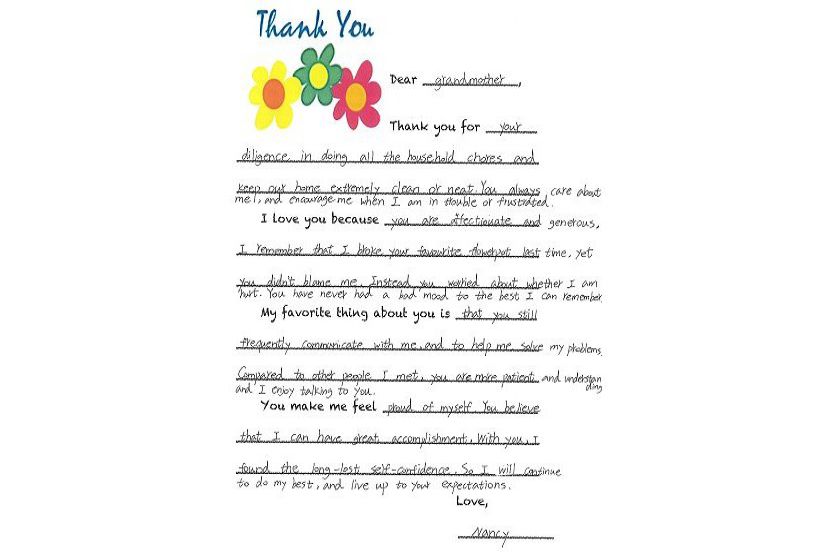 Thank You
Dear grandmother,
Thank you for your
diligence in doing all the household chores and
keep our home extremely clean or neat. You always care about
me!, and encourage me when I am in trouble or frustrated.
I love you because you are affectionate and generous,
I remember that I broke your favourite flowerpot last time, yet
you didn't blame me. Instead you worried about whether I am
hurt. You have never had a bad mood to the best I can remember
My favorite thing about you is that you still
frequently communicate with me, and to help me solve my problems.
Compared to other people I met, you are more patient and understan
ding
and I enjoy talking to you.
You make me feel proud of myself. You believe
that I can have great accomplishment. With you, I
found the long-lost self-confidence. So I will continue
to do my best, and live up to your expectations.
Love,
Nancy